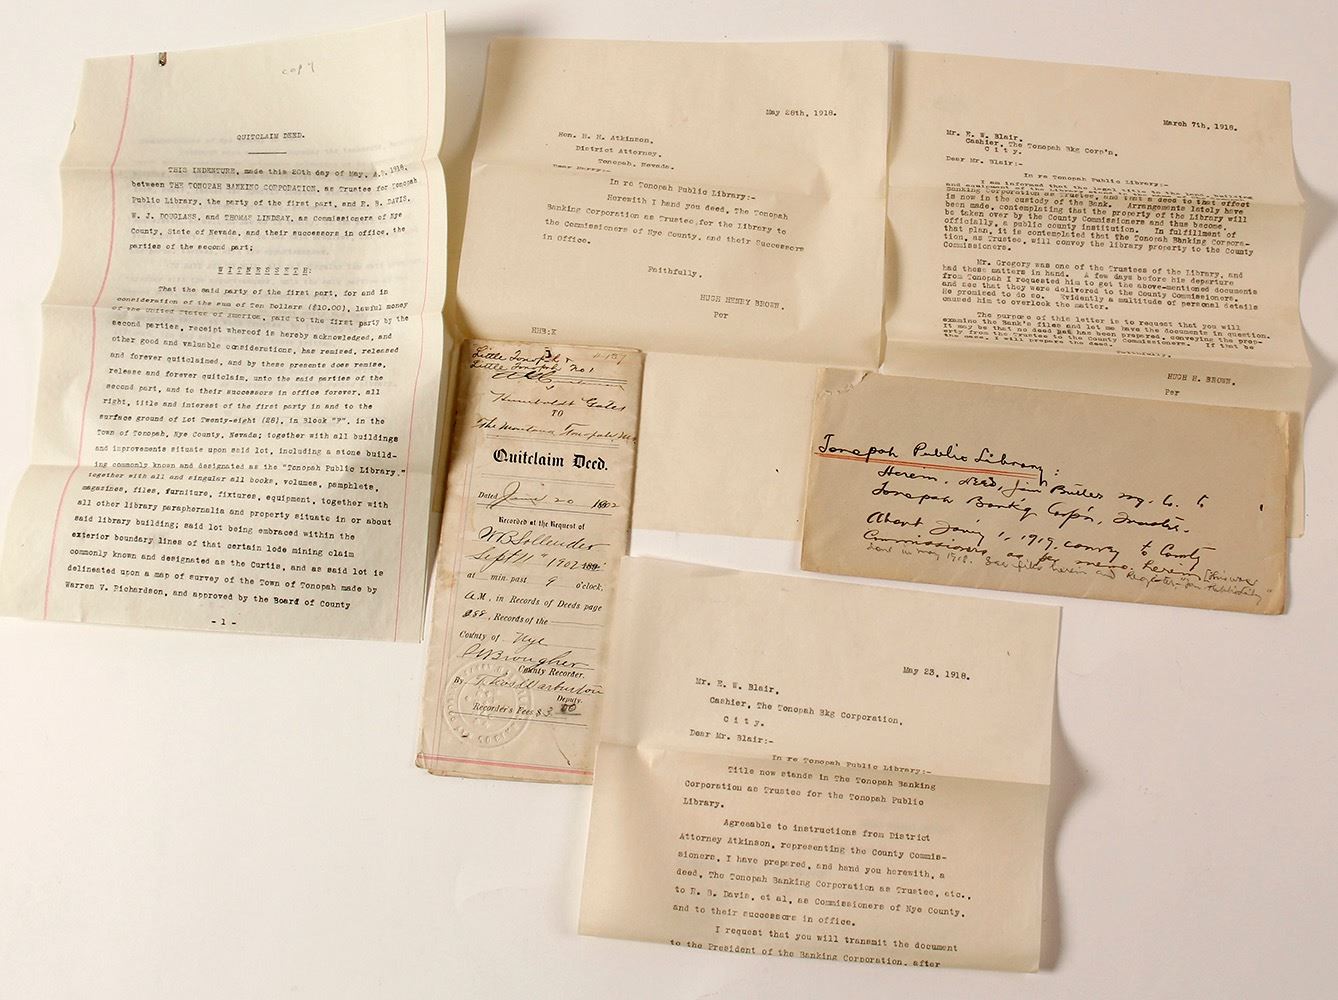 copy
QUITCLAIM DEED.
THIS INDENTURE, made this 28th day of May, A.D. 1918,
between THE TONOPAH BANKING CORPORATION, as Trustee for Tonopah
Public Library, the party of the first part, and R. B. DAVIS,
W. J. DOUGLASS, and THOMAS LINDSAY, as Commissioners of Nye
County, State of Nevada, and their successors in office, the
parties of the second part;
WITNESSETH:
That the said party of the first part, for and in
consideration of the sum of Ten Dollars ($10.00), lawful money
of the United States of America, paid to the first party by the
second parties, receipt whereof is hereby acknowledged, and
other good and valuable considerations, has remised, released
and forever quitclaimed, and by these presents does remise,
release and forever quitclaim, unto the said parties of the
second part, and to their successors in office forever, all
right, title and interest of the first party in and to the
surface ground of Lot Twenty-eight (28), in Block "F", in the
Town of Tonopah, Nye County, Nevada; together with all buildings
and improvements situate upon said lot, including a stone build-
ing commonly known and designated as the "Tonopah Public Library,"
together with all and singular all books, volumes, pamphlets,
magazines, files, furniture, fixtures, equipment, together with
all other library paraphernalia and property situate in or about
said library building; said lot being embraced within the
exterior boundary lines of that certain lode mining claim
commonly known and designated as the Curtis, and as said lot is
delineated upon a map of survey of the Town of Tonopah made by
Warren V. Richardson, and approved by the Board of County
-1-
May 28th, 1918.
Hon. H. H. Atkinson,
District Attorney,
Tonopah, Nevada.
Dear Harry:-
In re Tonopah Public Library:-
Herewith I hand you deed, The Tonopah
Banking Corporation as Trustee for the Library to
the Commissioners of Nye County, and their Successors
in Office.
Faithfully,
HUGH HENRY BROWN,
Per
HHB:K
March 7th, 1918.
Mr. E. W. Blair,
Cashier, The Tonopah Bkg Corp'n,
City.
Dear Mr. Blair:-
In re Tonopah Public Library:-
I am informed that the legal title to the land, building
and equipment of the Library
Banking Corporation as Trustee, and that a deed to that effect
is now in the custody of the Bank. Arrangements lately have
been made, contemplating that the property of the Library will
be taken over by the County Commissioners and thus become,
officially, a public county institution. In fulfillment of
that plan, it is contemplated that The Tonopah Banking Corpora-
tion, as Trustee, will convey the library property to the County
Commissioners.
Mr. Gregory was one of the Trustees of the Library, and
had those matters in hand. A few days before his departure
from Tonopah I requested him to get the above-mentioned documents
and see that they were delivered to the County Commissioners.
He promised to do so. Evidently a multitude of personal details
caused him to overlook the matter.
The purpose of this letter is to request that you will
examine the Bank's files and let me have the documents in question.
It may be that no deed yet has been prepared, conveying the prop-
erty from the Trustee to the County Commissioners. If that be
the case, I will prepare the deed.
Faithfully,
HUGH H. BROWN,
Per
Little Tonopah &
Little Tonopah No 1
Humboldt Gates
TO
The Montana Tonopah
Quitclaim Deed.
Dated June 20 1902
Recorded at the Request of
W B Sollender
Sept 11" 1902
at min. past 9 o'clock,
A.M., in Records of Deeds page
258, Records of the
County of Nye
County Recorder.
By Warburton
Deputy.
Recorder's Fees $3.00
Tonopah Public Library:
Herein, deed, Jim Butler Mg. Co. to
Tonopah Bank'g Corp'n, Trustee.
About Jan'y 1, 1919, convey to County
Commissioners, as per memo. herein
done in May 1918. See files herein and Register
May 23, 1918.
Mr. E. W. Blair,
Cashier, The Tonopah Bkg Corporation,
City.
Dear Mr. Blair:-
In re Tonopah Public Library:-
Title now stands in The Tonopah Banking
Corporation as Trustee for the Tonopah Public
Library.
Agreeable to instructions from District
Attorney Atkinson, representing the County Commis-
sioners, I have prepared, and hand you herewith, a
deed, The Tonopah Banking Corporation as Trustee, etc.,
to R. B. Davis, et al, as Commissioners of Nye County,
and to their successors in office.
I request that you will transmit the document
to the President of the Banking Corporation, after